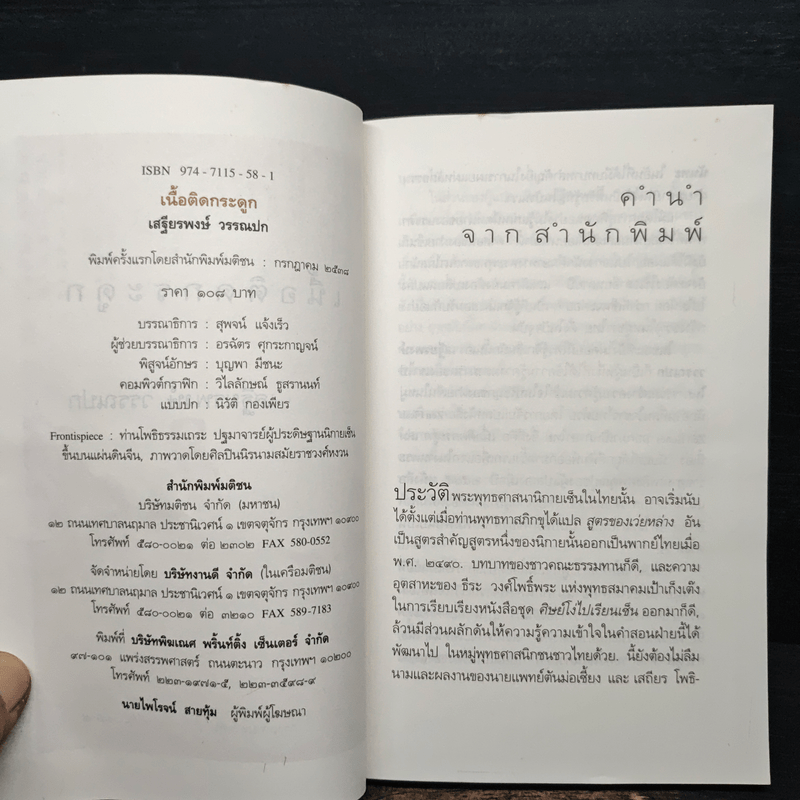 ISBN 974 - 7115 - 58 - 1
เนื้อติดกระดูก
เสฐียรพงษ์ วรรณปก
พิมพ์ครั้งแรกโดยสำนักพิมพ์มติชน : กรกฎาคม ๒๕๓๘
ราคา ๑๐๘ บาท
บรรณาธิการ : สุพจน์ แจ้งเร็ว
ผู้ช่วยบรรณาธิการ : อรฉัตร ศุกระกาญจน์
พิสูจน์อักษร : บุญพา มีชนะ
คอมพิวต์กราฟิก : วิไลลักษณ์ ธูสรานนท์
แบบปก : นิวัติ กองเพียร
Frontispiece : ท่านโพธิธรรมเถระ ปฐมาจารย์ผู้ประดิษฐานนิกายเซ็น
ขึ้นบนแผ่นดินจีน, ภาพวาดโดยศิลปินนิรนามสมัยราชวงศ์หงวน
สำนักพิมพ์มติชน
บริษัทมติชน จำกัด (มหาชน)
๑๒ ถนนเทศบาลนฤมาล ประชานิเวศน์ ๑ เขตจตุจักร กรุงเทพฯ ๑๐๙๐๐
โทรศัพท์ ๕๘๐-๐๐๒๑ ต่อ ๒๓๐๒ FAX 580-0552
จัดจำหน่ายโดย บริษัทงานดี จำกัด (ในเครือมติชน)
๑๒ ถนนเทศบาลนฤมาล ประชานิเวศน์ ๑ เขตจตุจักร กรุงเทพฯ ๑๐๙๐๐
โทรศัพท์ ๕๘๐-๐๐๒๑ ต่อ ๓๒๑๐ FAX 589-7183
พิมพ์ที่ บริษัทพิฆเณศ พริ้นท์ติ้ง เซ็นเตอร์ จำกัด
๙๗-๑๐๑ แพร่งสรรพศาสตร์ ถนนตะนาว กรุงเทพฯ ๑๐๒๐๐
โทรศัพท์ ๒๒๓-๑๙๗๑-๕, ๒๒๓-๓๕๙๘-๙
นายไพโรจน์ สายทุ้ม ผู้พิมพ์ผู้โฆษณา
คำนำ
จากสำนักพิมพ์
ประวัติ พระพุทธศาสนานิกายเซ็นในไทยนั้น อาจเริ่มนับ
ได้ตั้งแต่เมื่อท่านพุทธทาสภิกขุได้แปล สูตรของเว่ยหล่าง อัน
เป็นสูตรสำคัญสูตรหนึ่งของนิกายนั้นออกเป็นพากย์ไทยเมื่อ
พ.ศ. ๒๔๙๐. บทบาทของชาวคณะธรรมทานก็ดี, และความ
อุตสาหะของ ธีระ วงศ์โพธิ์พระ แห่งพุทธสมาคมเป้าเก็งเต๊ง
ในการเรียบเรียงหนังสือชุด ศิษย์โง่ไปเรียนเซ็น ออกมาก็ดี,
ล้วนมีส่วนผลักดันให้ความรู้ความเข้าใจในคำสอนฝ่ายนี้ได้
พัฒนาไป ในหมู่พุทธศาสนิกชนชาวไทยด้วย. นี้ยังต้องไม่ลืม
นามและผลงานของนายแพทย์ตันม่อเซี้ยง และ เสถียร โพธิ-